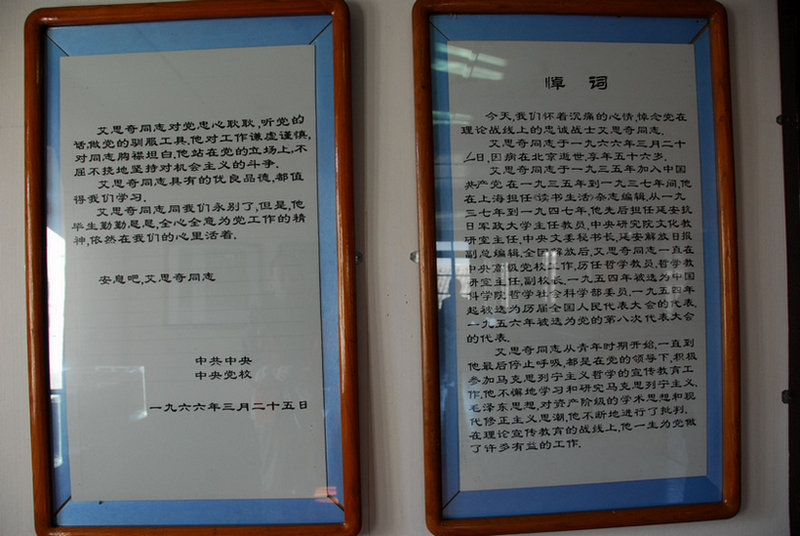 悼词
今天,我们怀着沉痛的心情,悼念党在
理论战线上的忠诚战士艾思奇同志.
艾思奇同志于一九六六年三月二十
二日,因病在北京逝世,享年五十六岁.
艾思奇同志于一九三五年加入中国
共产党在一九三五年到一九三七年间,他
在上海担任《读书生活》杂志编辑,从一九
三七年到一九四七年,他先后担任延安抗
日军政大学主任教员,中央研究院文化教
研室主任,中央文委秘书长,延安解放日报
副总编辑,全国解放后,艾思奇同志一直在
中央高级党校工作,历任哲学教员,哲学教
研室主任,副校长,一九五四年被选为中国
科学院哲学社会科学部委员,一九五四年
起被选为历届全国人民代表大会的代表,
一九五六年被选为党的第八次代表大会
的代表.
艾思奇同志从青年时期开始,一直到
他最后停止呼吸,都是在党的领导下,积极
参加马克思列宁主义哲学的宣传教育工
作,他不懈地学习和研究马克思列宁主义,
毛泽东思想,对资产阶级的学术思想和现
代修正主义思潮,他不断地进行了批判,
在理论宣传教育的战线上,他一生为党做
了许多有益的工作.
艾思奇同志对党,忠心耿耿,听党的
话,做党的驯服工具,他对工作谦虚谨慎,
对同志胸襟坦白,他站在党的立场上,不
屈不挠地坚持对机会主义的斗争.
艾思奇同志具有的优良品德,都值
得我们学习.
艾思奇同志同我们永别了,但是,他
毕生勤勤恳恳,全心全意为党工作的精
神,依然在我们的心里活着.
安息吧,艾思奇同志
中共中央
中央党校
一九六六年三月二十五日